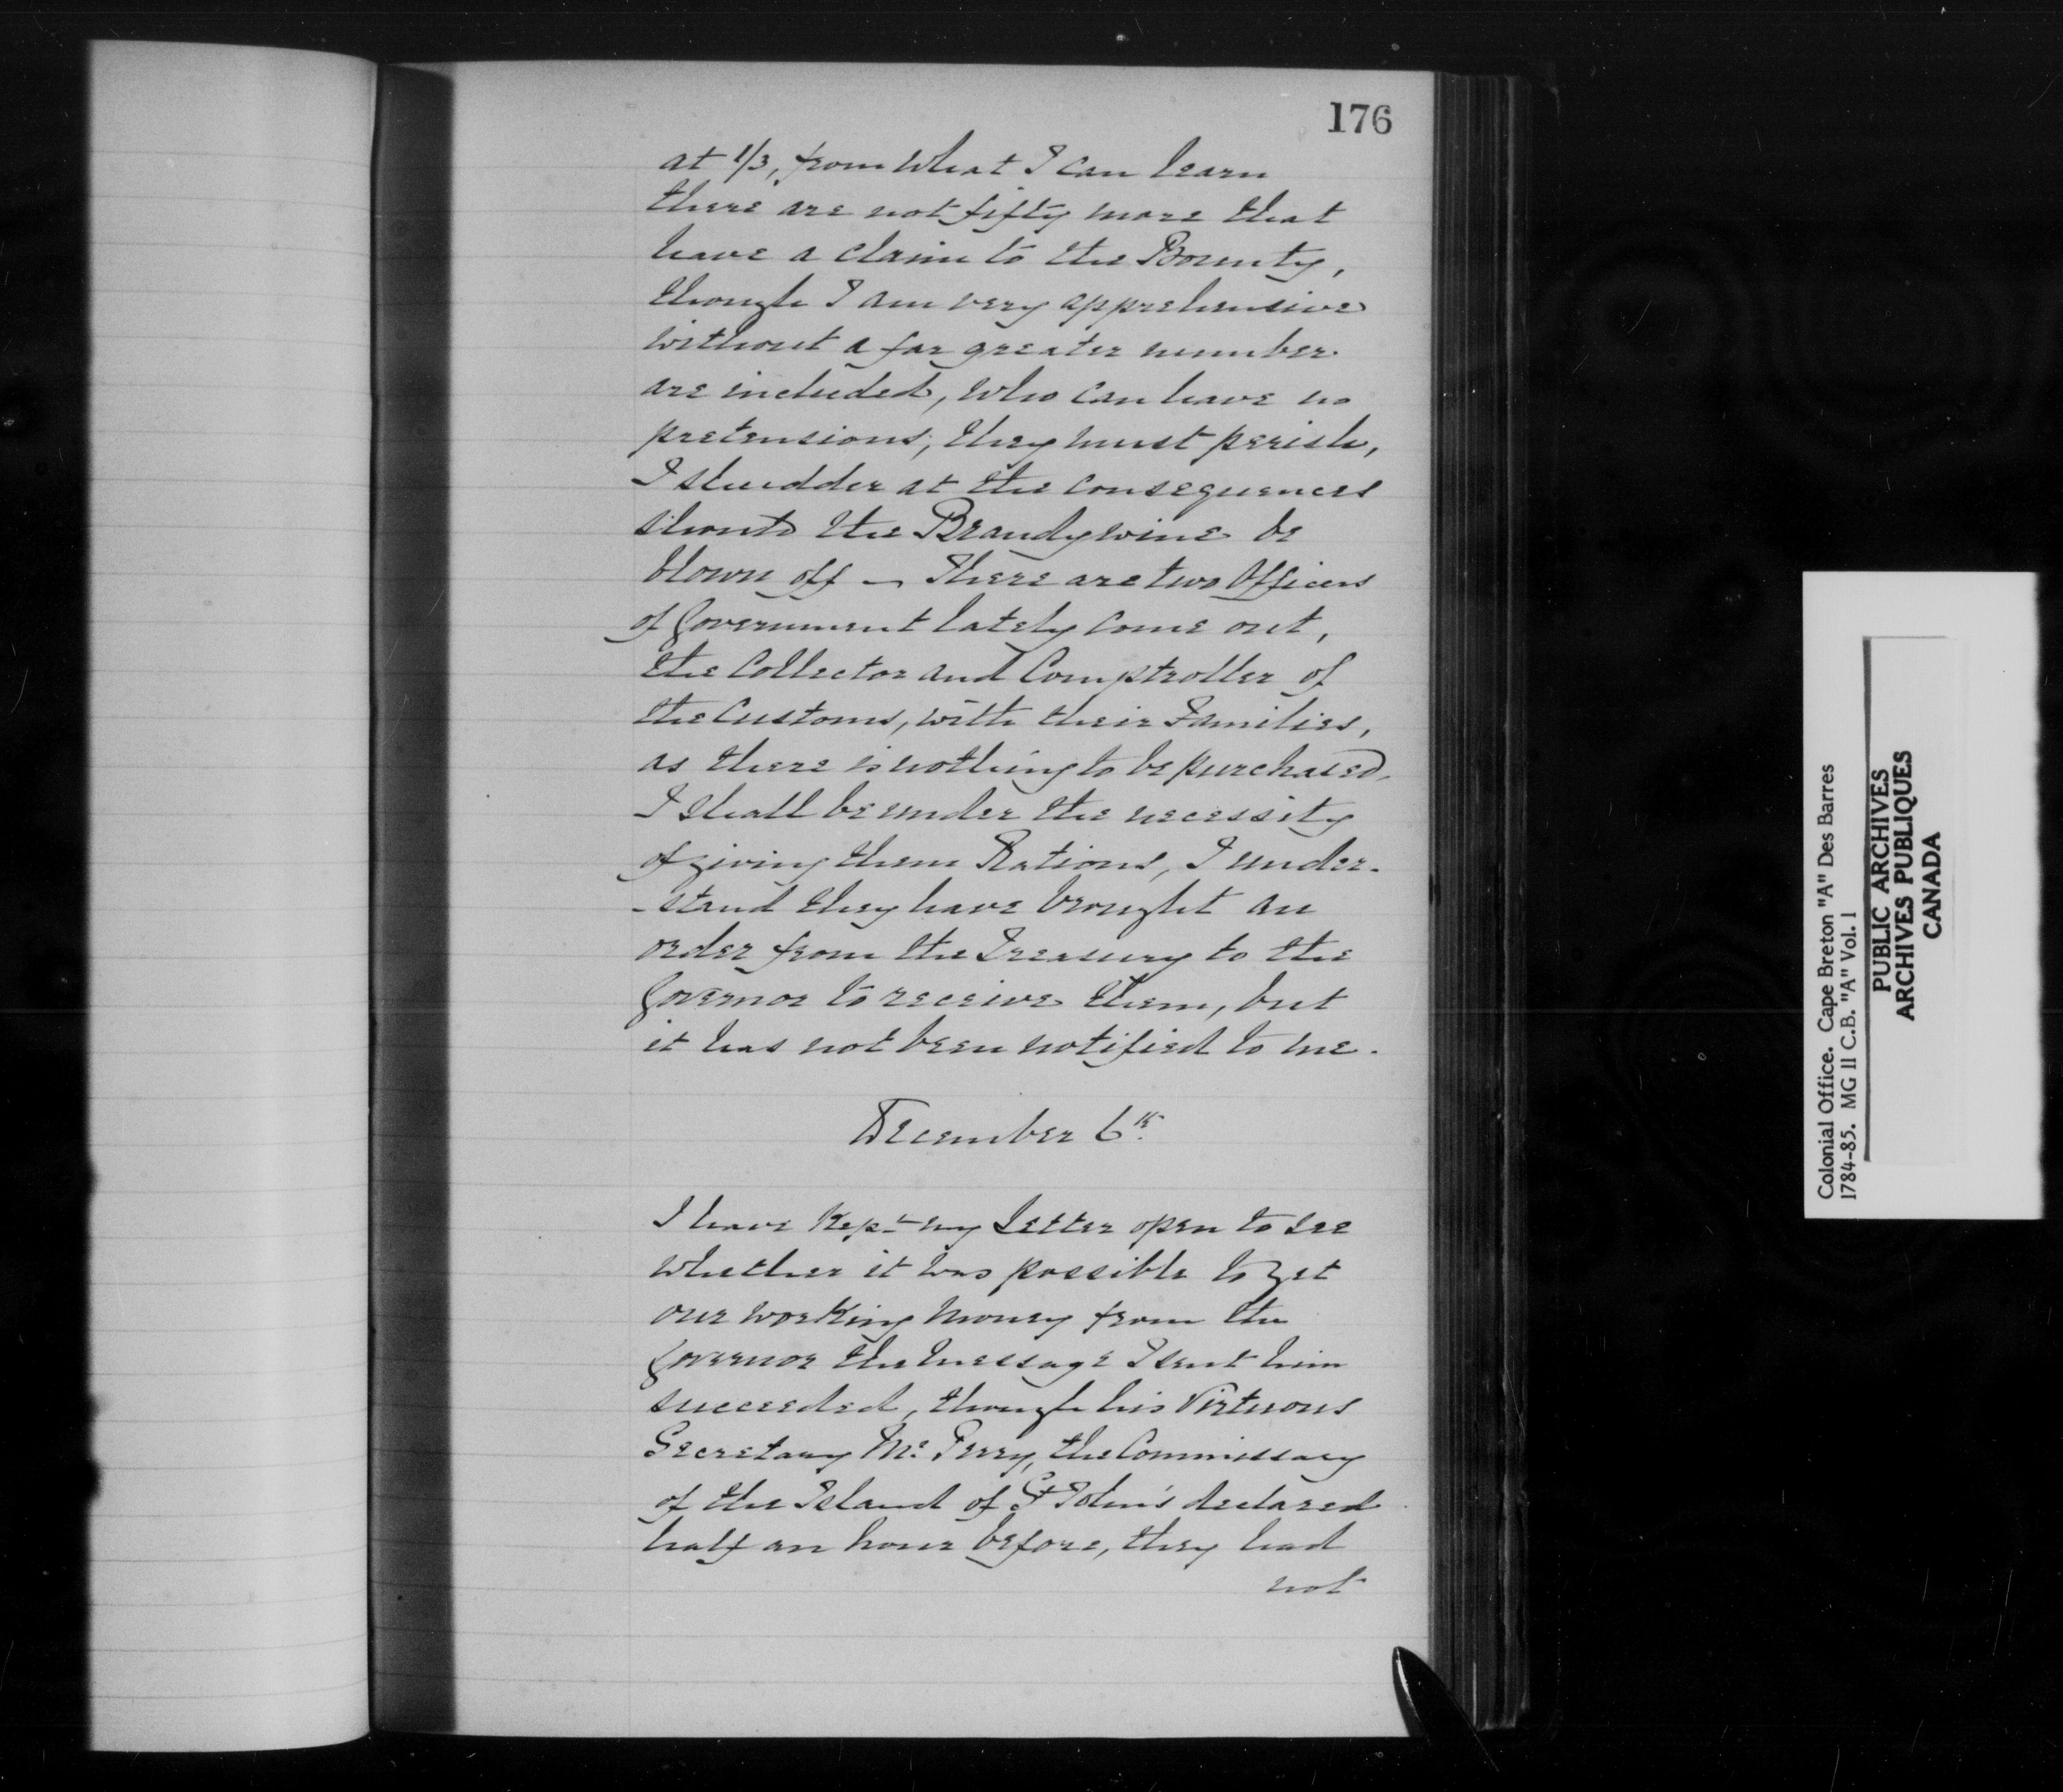 176
at 1/3, from what I can learn
there are not fifty more that
have a claim to the Bounty,
though I am very apprehensive
without a far greater number
are included, who can have no
pretensions, they must perish,
I shudder at the consequences
should the Brandywine be
blown off — There are two Officers
of Government lately come out,
the Collector and Comptroller of
the Customs, with their Families,
as there is nothing to be purchased
I shall be under the necessity
of giving them Rations, I under-
-stand they have brought an
order from the Treasury to the
Governor to receive them, but
it has not been notified to me.
December 6th.
I have Kept my Letter open to see
whether it was possible to get
our working money from the
Governor the message I sent him
succeeded, though his Virtuous
Secretary Mr. Perry, the Commissary
of the Island of St John's declared
half an hour before, they had
not
Colonial Office. Cape Breton "A" Des Barres
1784-85. MG 11 C.B. "A" Vol. 1
PUBLIC ARCHIVES
ARCHIVES PUBLIQUES
CANADA